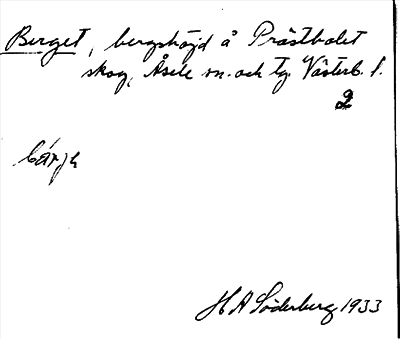 Berget, bergshöjd å Prästbolet
skog, Åsele sn. och tg. Västerb. l.
2
bárje
H A Söderberg 1933